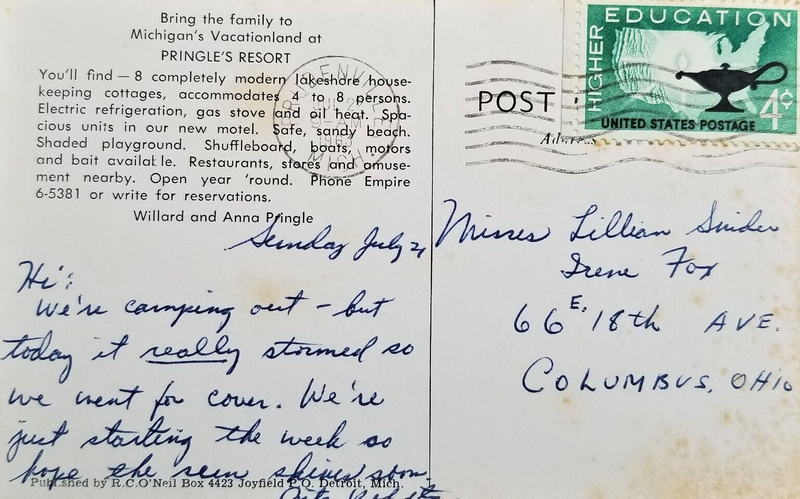 Bring the family to
Michigan's Vacationland at
PRINGLE'S RESORT
You'll find — 8 completely modern lakeshore house-
keeping cottages, accommodates 4 to 8 persons.
Electric refrigeration, gas stove and oil heat. Spa-
cious units in our new motel. Safe, sandy beach.
Shaded playground. Shuffleboard, boats, motors
and bait available. Restaurants, stores and amuse-
ment nearby. Open year 'round. Phone Empire
6-5381 or write for reservations.
Willard and Anna Pringle
Sunday July 21
Hi:
We're camping out - but
today it really stormed so
we went for cover. We're
just starting the week so
hope the sun shines soon.
Published by R.C.O'Neil Box 4423 Joyfield P.O. Detroit, Mich.
AM
MICH.
POST
Address
HIGHER EDUCATION
4¢
UNITED STATES POSTAGE
Misses Lillian Snider
Irene Fox
66 E. 18th AVE.
COLUMBUS, OHIO